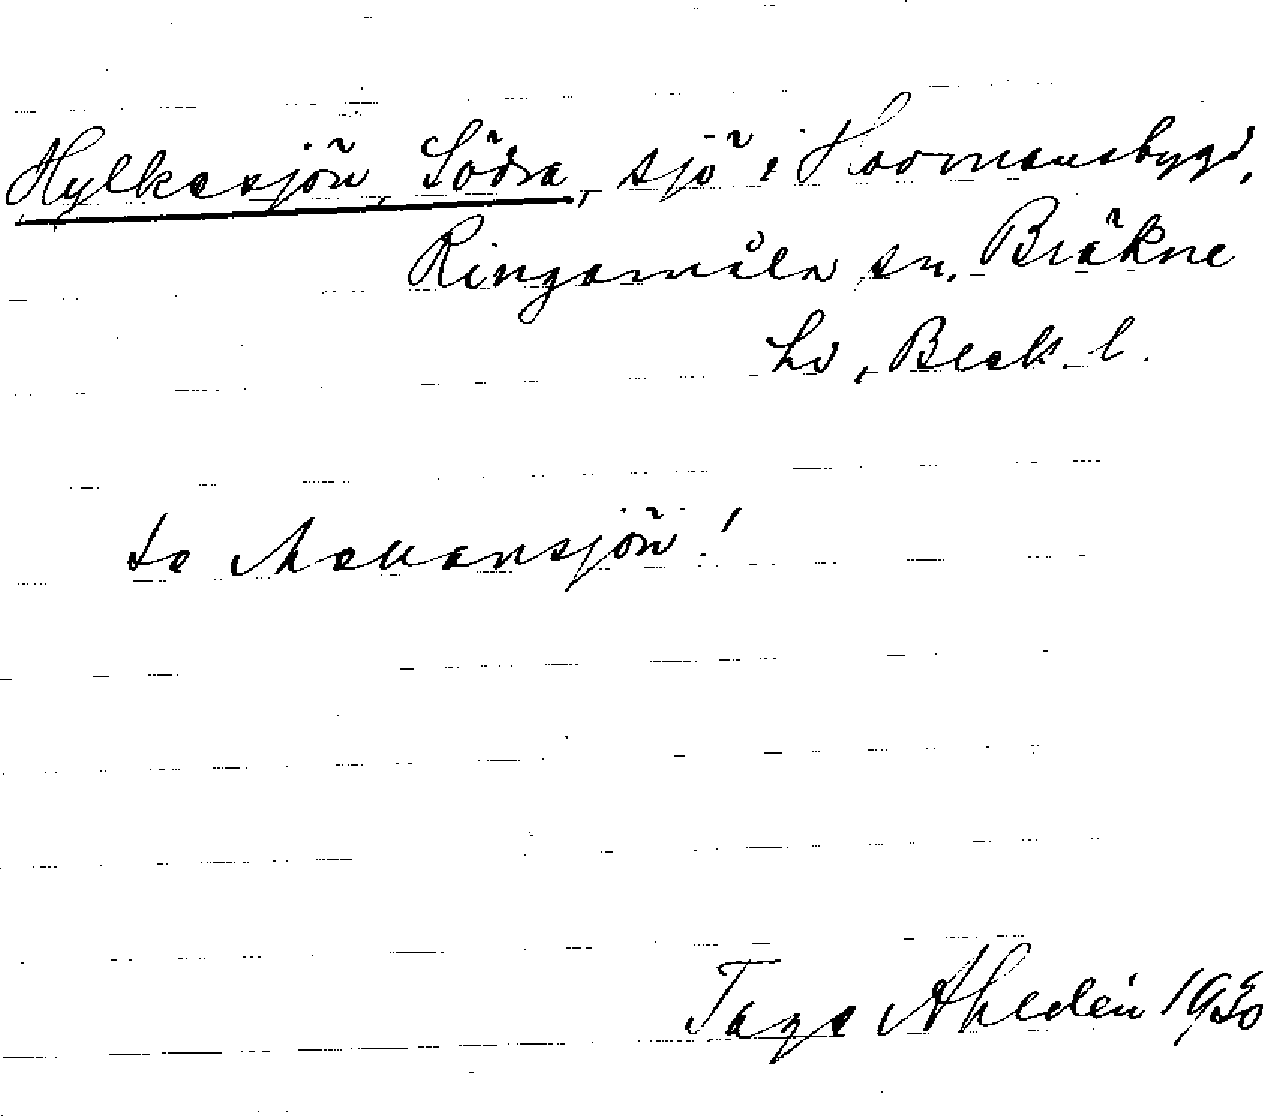 Hylkasjön, Södra, sjö i Hoomansbygd,
Ringamåla sn. Bräkne
hd, Blek. l.
se Makansjön!
Tage Ahldén 1930